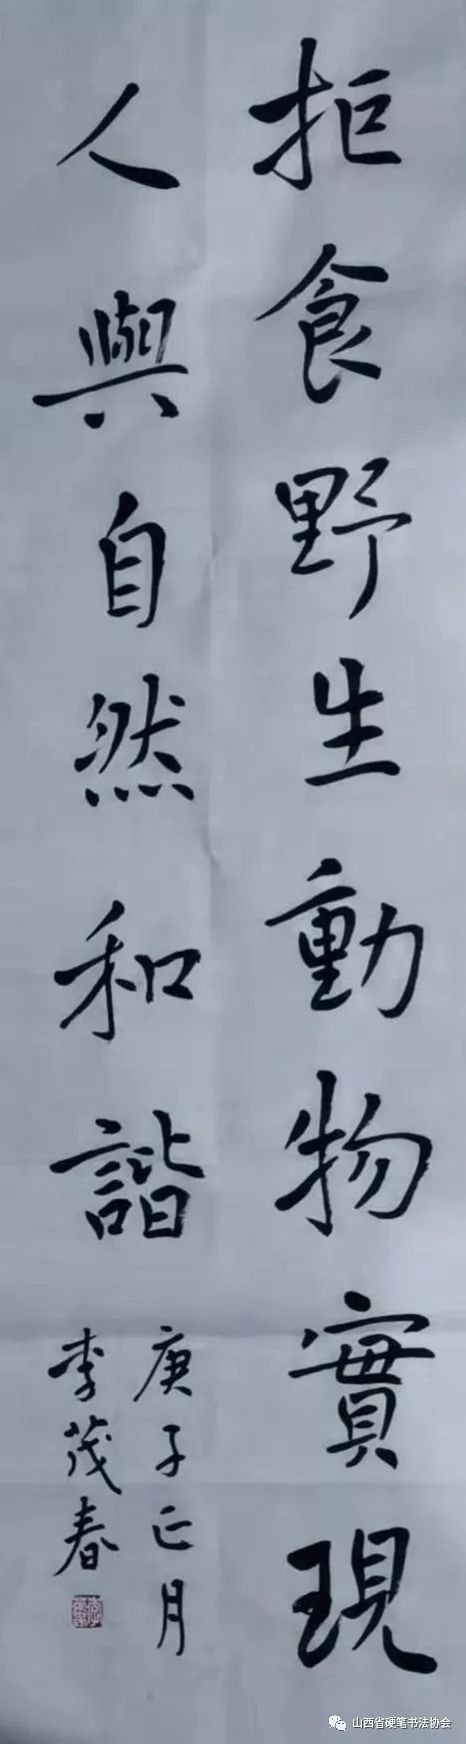 拒食野生動物實現
人與自然和諧
庚子正月
李茂春
山西省硬笔书法协会